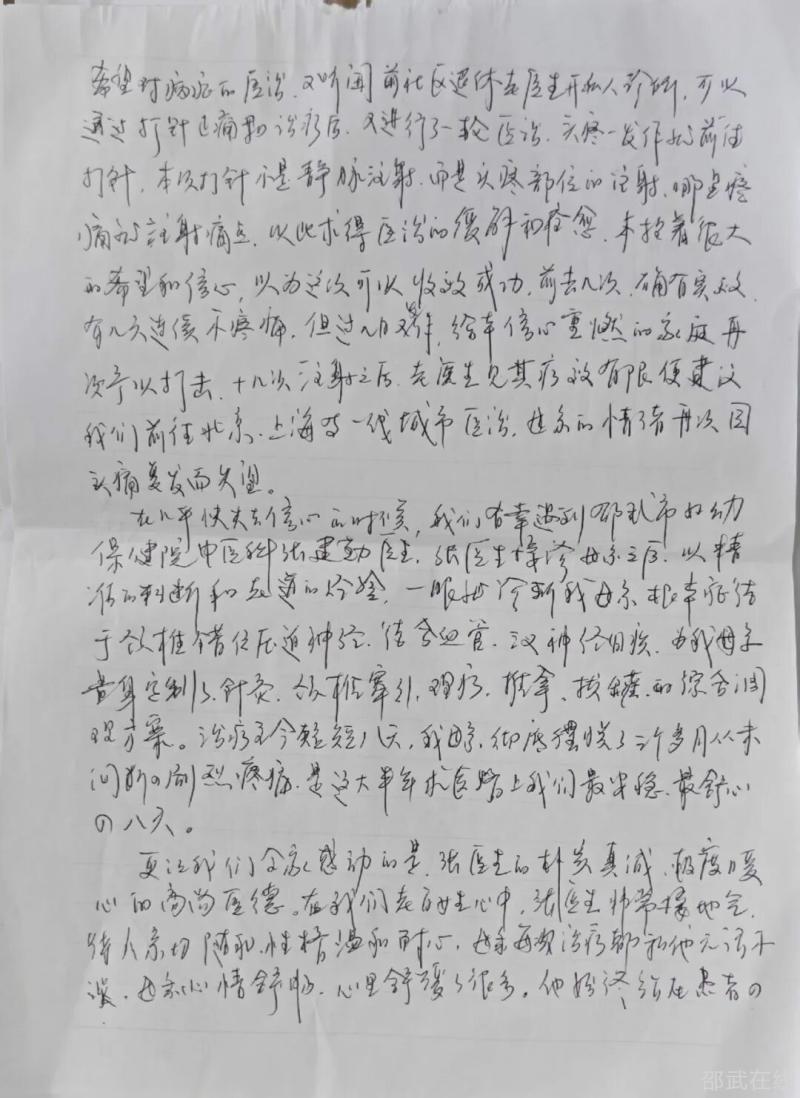 希望对病症的医治,又听闻前社区退休老医生开私人诊所,可以
通过打针止痛物治疗后,又进行了一轮医治,头疼一发作就前往
打针,本次打针不是静脉注射,而是头疼部位的注射,哪里疼
痛就注射痛点,以此求得医治的缓解和痊愈,本抱着很大
的希望和信心,以为这次可以收效成功,前去几次,确有实效,
有几天连续不疼痛,但过几日又作,给本信心重燃的家庭再
次予以打击,十几次注射之后,老医生见其疗效有限便建议
我们前往北京、上海等一线城市医治,母亲的情绪再次因
头痛复发而失望。
在几乎快失去信心的时候,我们有幸遇到邵武市妇幼
保健院中医科张建勤医生,张医生接诊母亲之后,以精
准的判断和老道的经验,一眼地诊断我母亲根本症结
于颈椎错位压迫神经,结合血管、神经旧疾,为我母亲
量身定制了针灸、颈椎牵引、理疗、推拿、拔罐的综合调
理方案。治疗至今短短八天,我母亲彻底摆脱了三个多月从未
间断的剧烈疼痛,是这大半年求医路上我们最安稳、最舒心
的八天。
更让我们全家感动的是,张医生的朴实真诚、极度暖
心的高尚医德。在我们老百姓心中,张医生非常接地气,
待人亲切随和,性格温和耐心,母亲每次治疗都和他无话不
谈,母亲心情舒畅,心里舒缓了很多,他始终站在患者的
邵武在线